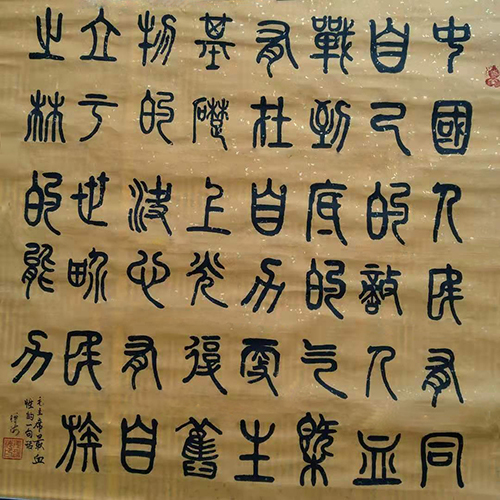 中國人民有同
自己的敵人血
戰到底的气概
有在自力更生
基礎上光復舊
物的決心有自
立亏世界民族
之林的能力
毛主席
的一句